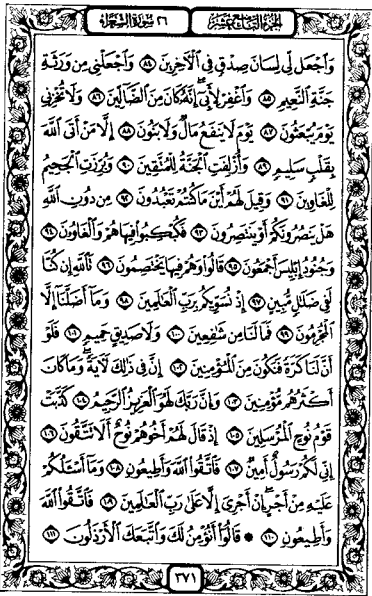 الجزء التاسع عشر ٢٦ سورة الشعراء
وَاجْعَل لِّي لِسَانَ صِدْقٍ فِي الْآخِرِينَ ٨٤ وَاجْعَلْنِي مِن وَرَثَةِ
جَنَّةِ النَّعِيمِ ٨٥ وَاغْفِرْ لِأَبِي إِنَّهُ كَانَ مِنَ الضَّالِّينَ ٨٦ وَلَا تُخْزِنِي
يَوْمَ يُبْعَثُونَ ٨٧ يَوْمَ لَا يَنفَعُ مَالٌ وَلَا بَنُونَ ٨٨ إِلَّا مَنْ أَتَى اللَّهَ
بِقَلْبٍ سَلِيمٍ ٨٩ وَأُزْلِفَتِ الْجَنَّةُ لِلْمُتَّقِينَ ٩٠ وَبُرِّزَتِ الْجَحِيمُ
لِلْغَاوِينَ ٩١ وَقِيلَ لَهُمْ أَيْنَ مَا كُنتُمْ تَعْبُدُونَ ٩٢ مِن دُونِ اللَّهِ
هَلْ يَنصُرُونَكُمْ أَوْ يَنتَصِرُونَ ٩٣ فَكُبْكِبُوا فِيهَا هُمْ وَالْغَاوُونَ ٩٤
وَجُنُودُ إِبْلِيسَ أَجْمَعُونَ ٩٥ قَالُوا وَهُمْ فِيهَا يَخْتَصِمُونَ ٩٦ تَاللَّهِ إِن كُنَّا
لَفِي ضَلَالٍ مُّبِينٍ ٩٧ إِذْ نُسَوِّيكُم بِرَبِّ الْعَالَمِينَ ٩٨ وَمَا أَضَلَّنَا إِلَّا
الْمُجْرِمُونَ ٩٩ فَمَا لَنَا مِن شَافِعِينَ ١٠٠ وَلَا صَدِيقٍ حَمِيمٍ ١٠١ فَلَوْ
أَنَّ لَنَا كَرَّةً فَنَكُونَ مِنَ الْمُؤْمِنِينَ ١٠٢ إِنَّ فِي ذَٰلِكَ لَآيَةً وَمَا كَانَ
أَكْثَرُهُم مُّؤْمِنِينَ ١٠٣ وَإِنَّ رَبَّكَ لَهُوَ الْعَزِيزُ الرَّحِيمُ ١٠٤ كَذَّبَتْ
قَوْمُ نُوحٍ الْمُرْسَلِينَ ١٠٥ إِذْ قَالَ لَهُمْ أَخُوهُمْ نُوحٌ أَلَا تَتَّقُونَ ١٠٦
إِنِّي لَكُمْ رَسُولٌ أَمِينٌ ١٠٧ فَاتَّقُوا اللَّهَ وَأَطِيعُونِ ١٠٨ وَمَا أَسْأَلُكُمْ
عَلَيْهِ مِنْ أَجْرٍ إِنْ أَجْرِيَ إِلَّا عَلَىٰ رَبِّ الْعَالَمِينَ ١٠٩ فَاتَّقُوا اللَّهَ
وَأَطِيعُونِ ١١٠ ۞ قَالُوا أَنُؤْمِنُ لَكَ وَاتَّبَعَكَ الْأَرْذَلُونَ ١١١
٣٧١